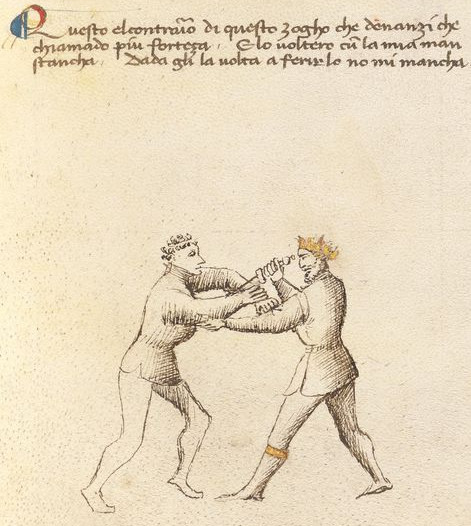 Questo el contraro di questo zogho che denanzi che
chiamado piu forteça. E lo voltero cũ la mia man
stancha. Dada gli la volta a ferirlo no mi mancha